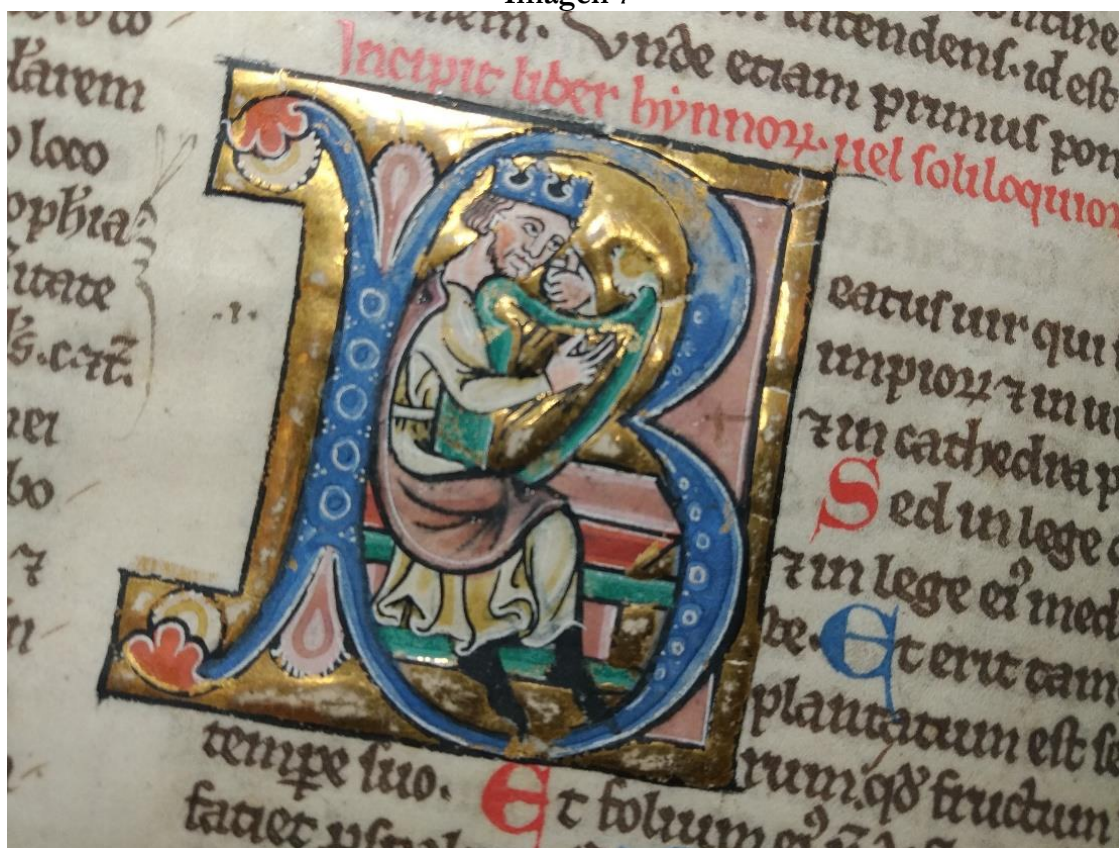 Imagen 7
larem
loco
ophia
itate
nei
bo
⁊
ntendenſ. id eſt
Vnde etiam primuſ pon
Incipit liber hẏnnoꝝ. uel ſoliloquior
Beatuſ uir qui
impioꝝ ⁊ in u
⁊ in cathedra p
Sed in lege
⁊ in lege eiꝰ med
te. Et erit tam
plantatum eſt ſe
rum. qđ fructum
temꝑe ſuo. Et folium eiꝰ
faciet